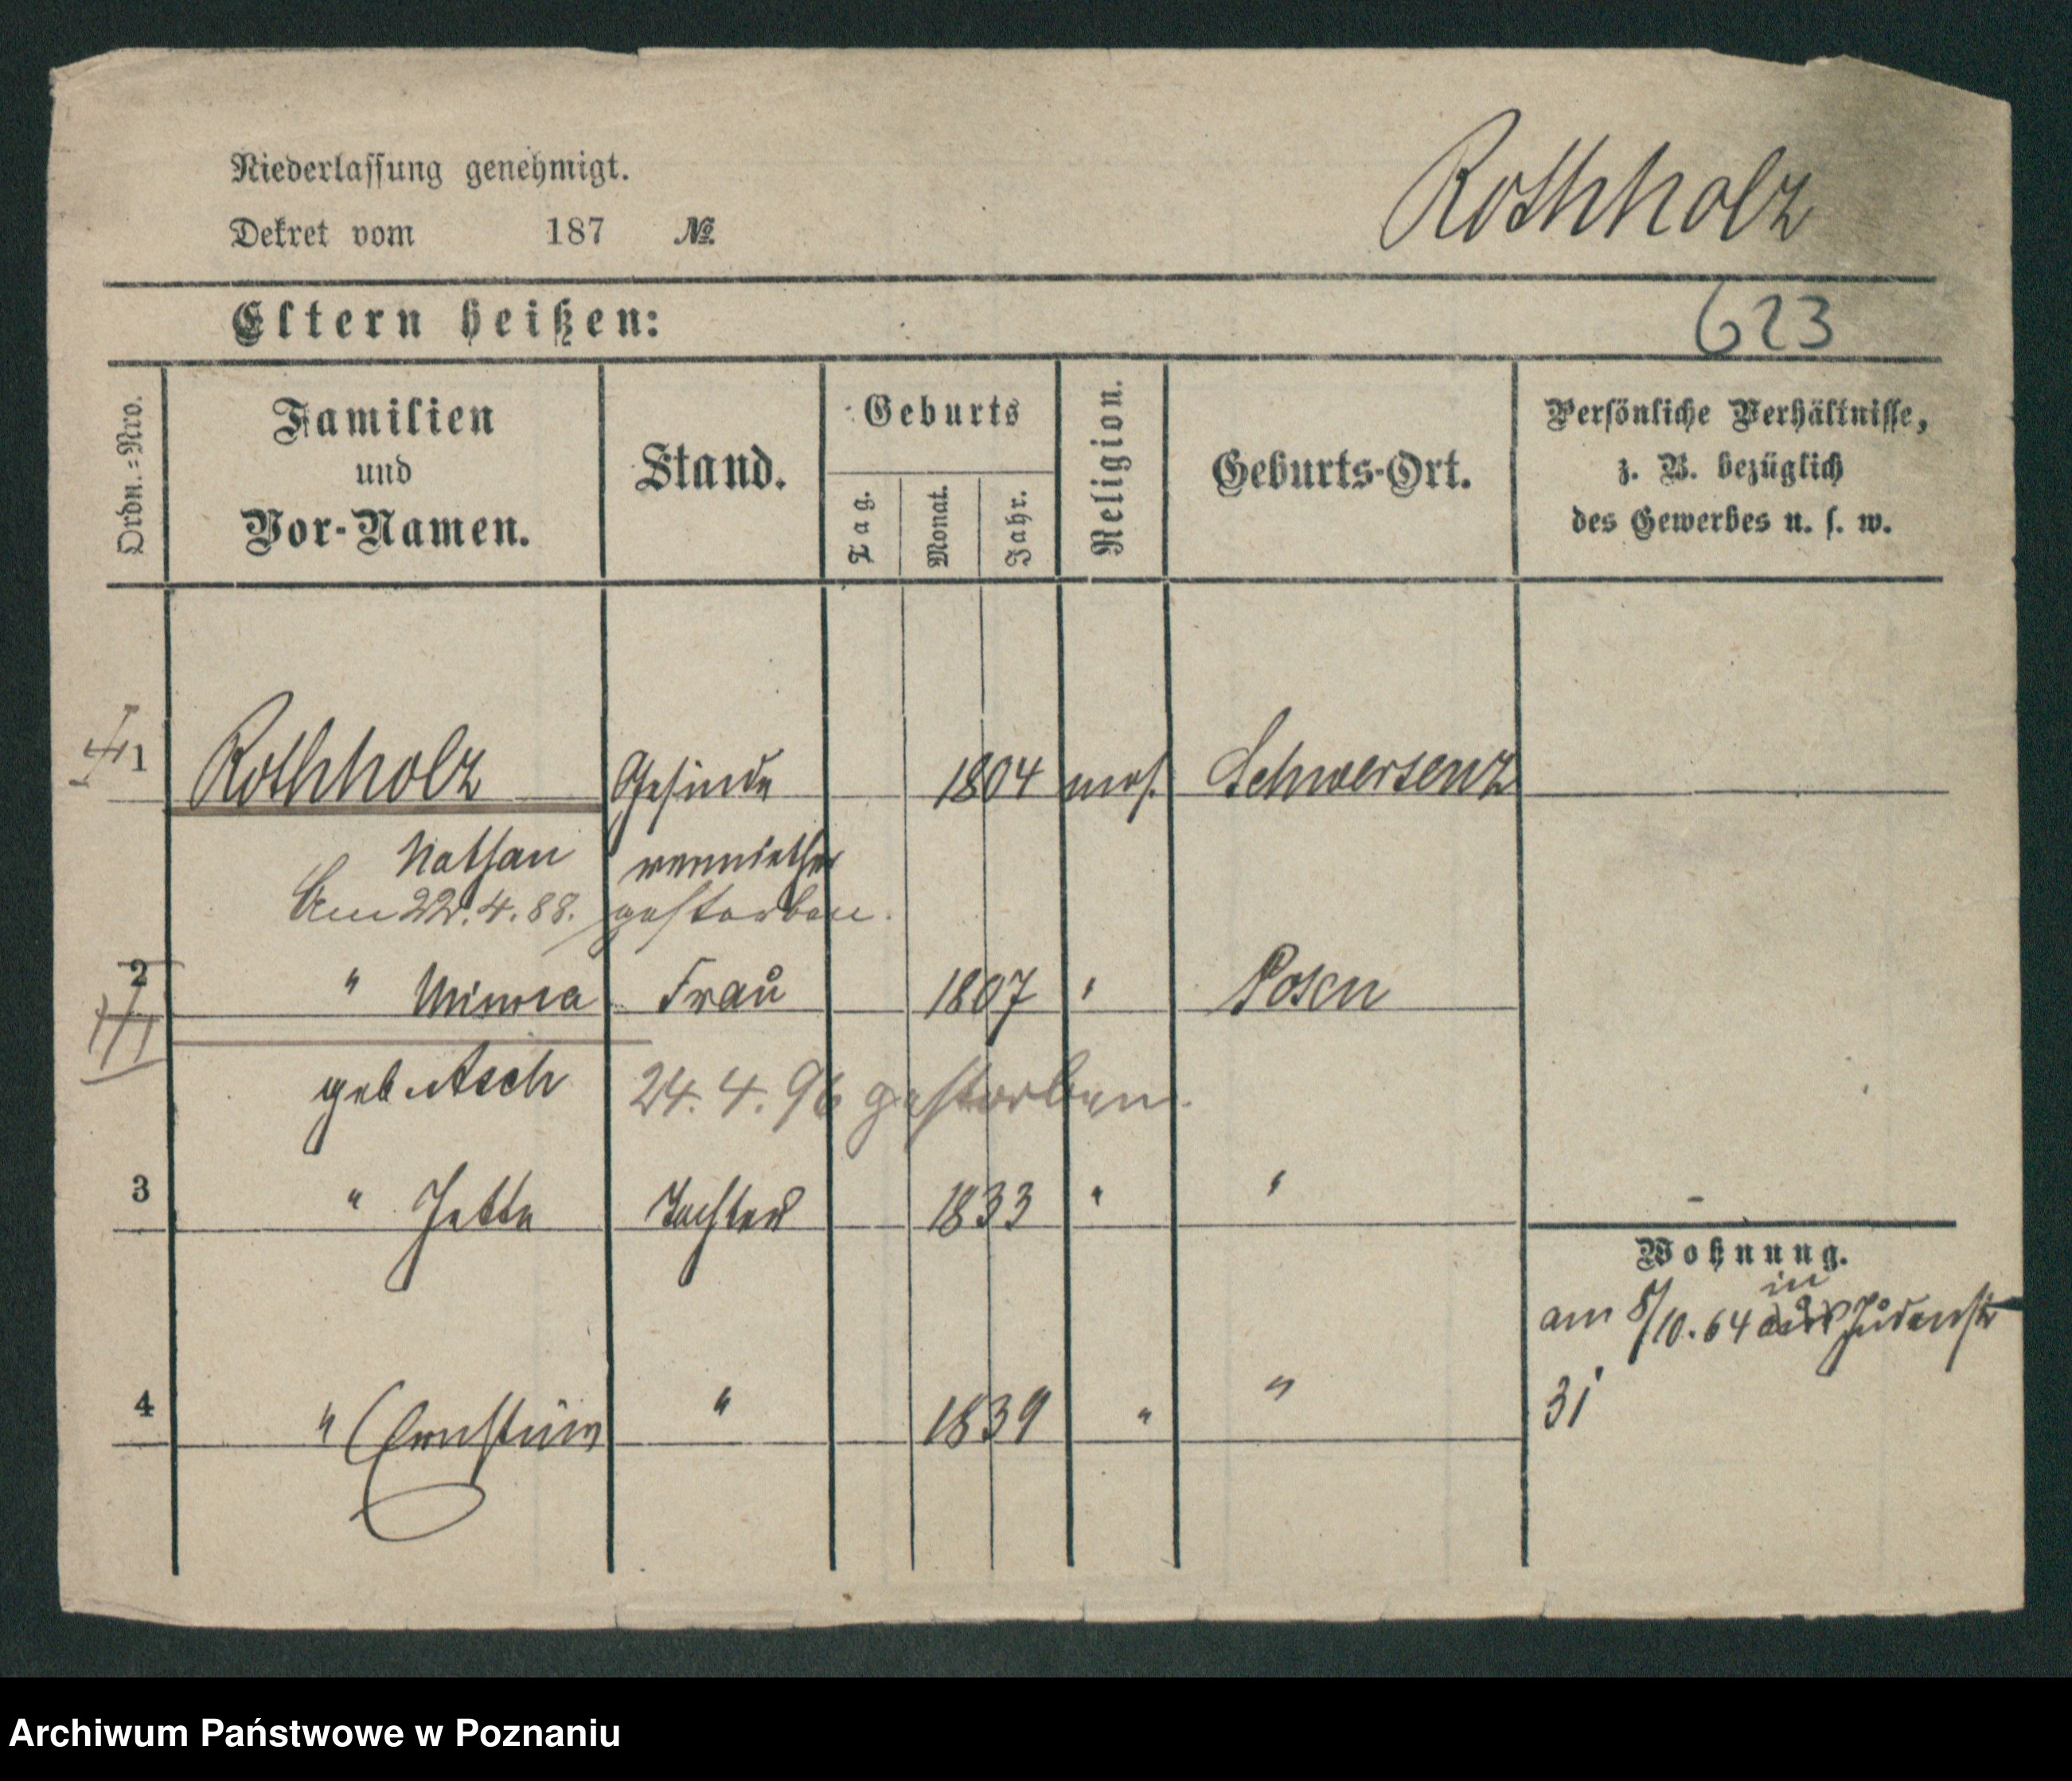 Niederlassung genehmigt.
Dekret vom 187 №.
Rothholz
Eltern heißen:
623
Ordn.=Nro.
Familien
und
Vor-Namen.
Stand.
Geburts
Tag.
Monat.
Jahr.
Religion.
Geburts-Ort.
Persönliche Verhältnisse,
z. B. bezüglich
des Gewerbes u. s. w.
1 Rothholz Gesinde 1804 mos. Schwersenz
Nathan vermiether
Am 22.4.88. gestorben.
2 " Frau 1807 " Posen
geb. Asch 24.4.96 gestorben.
3 " Jette Tochter 1833 " "
4 " Ernstine " 1839 " "
Wohnung.
in
am 8/10.64 Judenstr
31
Archiwum Państwowe w Poznaniu